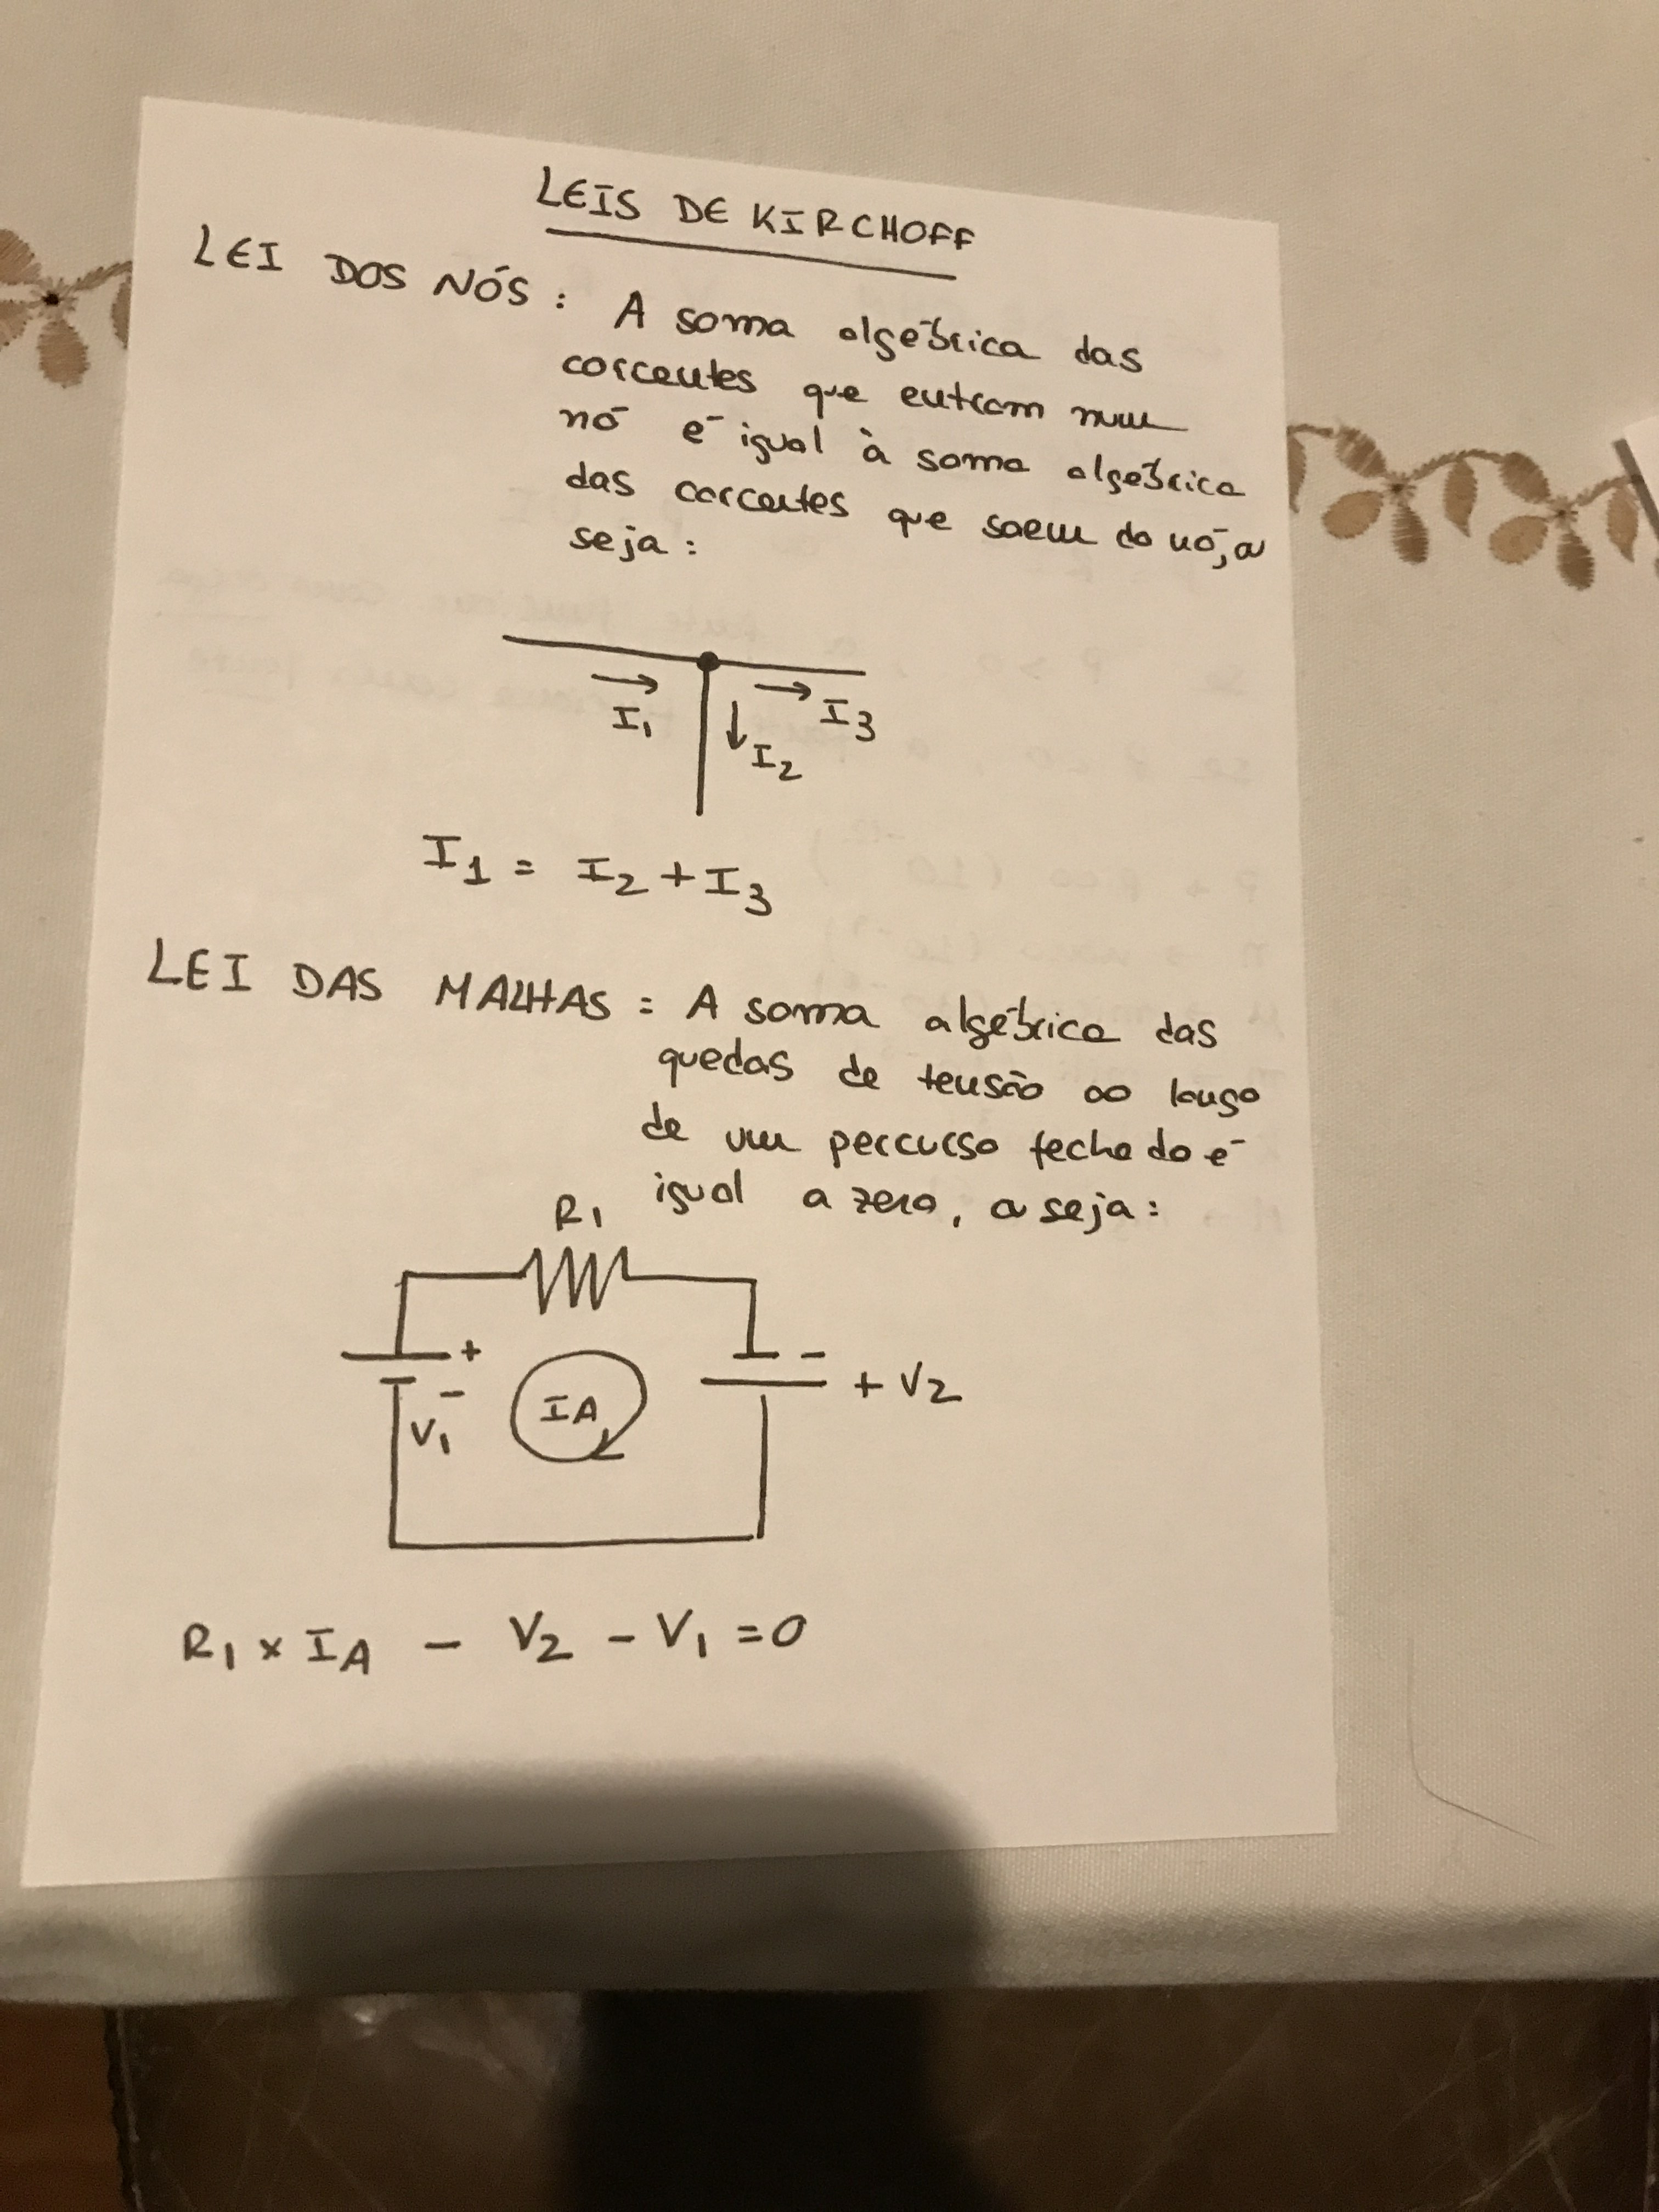 LEIS DE KIRCHOFF
LEI DOS NÓS : A soma algébrica das
correntes que entram num
nó é igual à soma algébrica
das correntes que saem do nó, ou
seja :
I1
I3
I2
I1 = I2 + I3
LEI DAS MALHAS : A soma algébrica das
quedas de tensão ao longo
de um percurso fechado é
igual a zero, ou seja :
R1
+ -
- IA + V2
V1
R1 x IA - V2 - V1 = 0